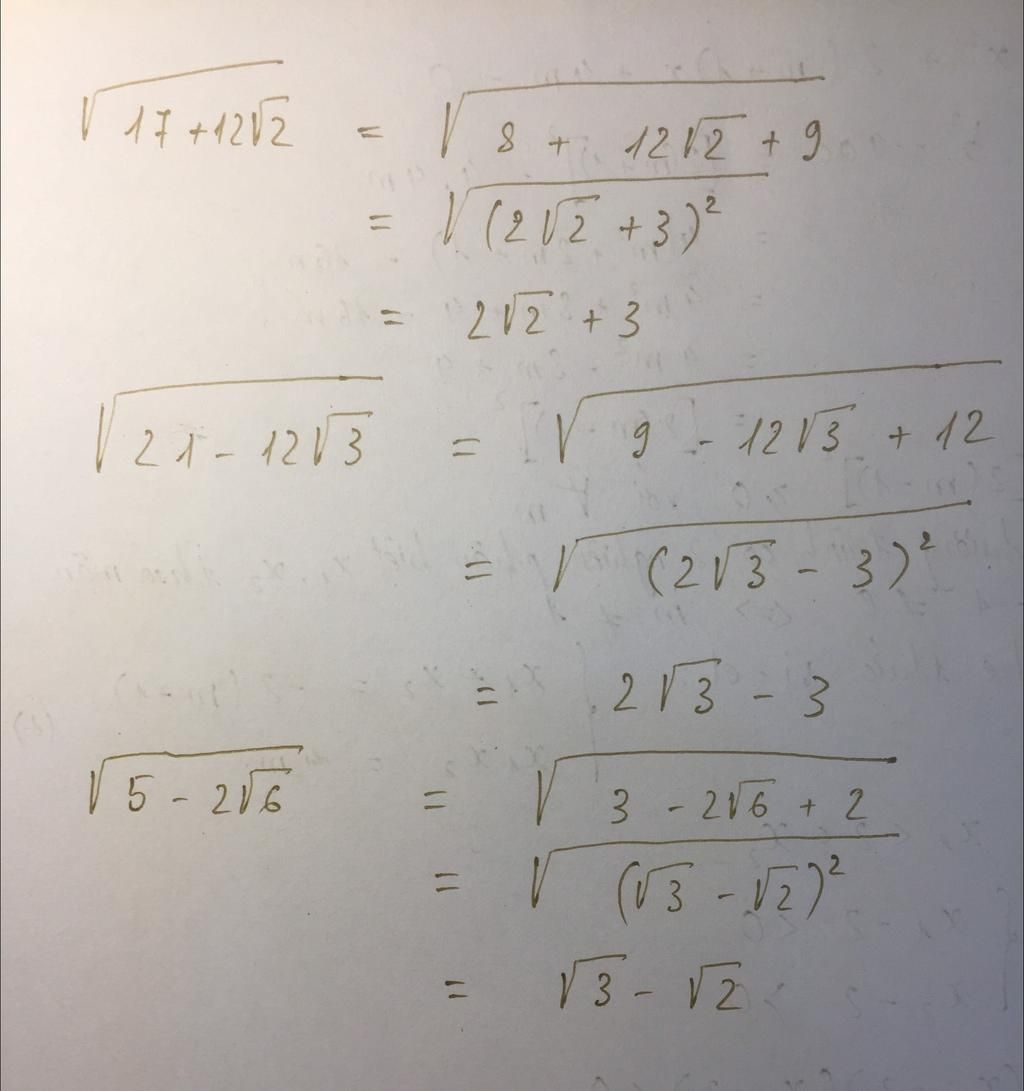 √(17 + 12√2) = √(8 + 12√2 + 9)
= √((2√2 + 3)²)
= 2√2 + 3
√(21 - 12√3) = √(9 - 12√3 + 12)
= √((2√3 - 3)²)
= 2√3 - 3
√(5 - 2√6) = √(3 - 2√6 + 2)
= √((√3 - √2)²)
= √3 - √2